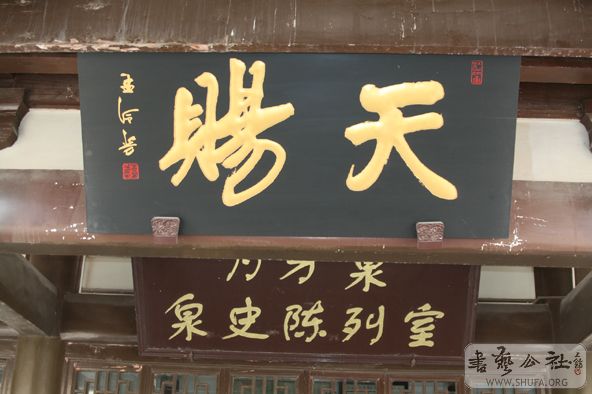 天賜
月牙泉
泉史陈列室
書藝公社
WWW.SHUFA.ORG